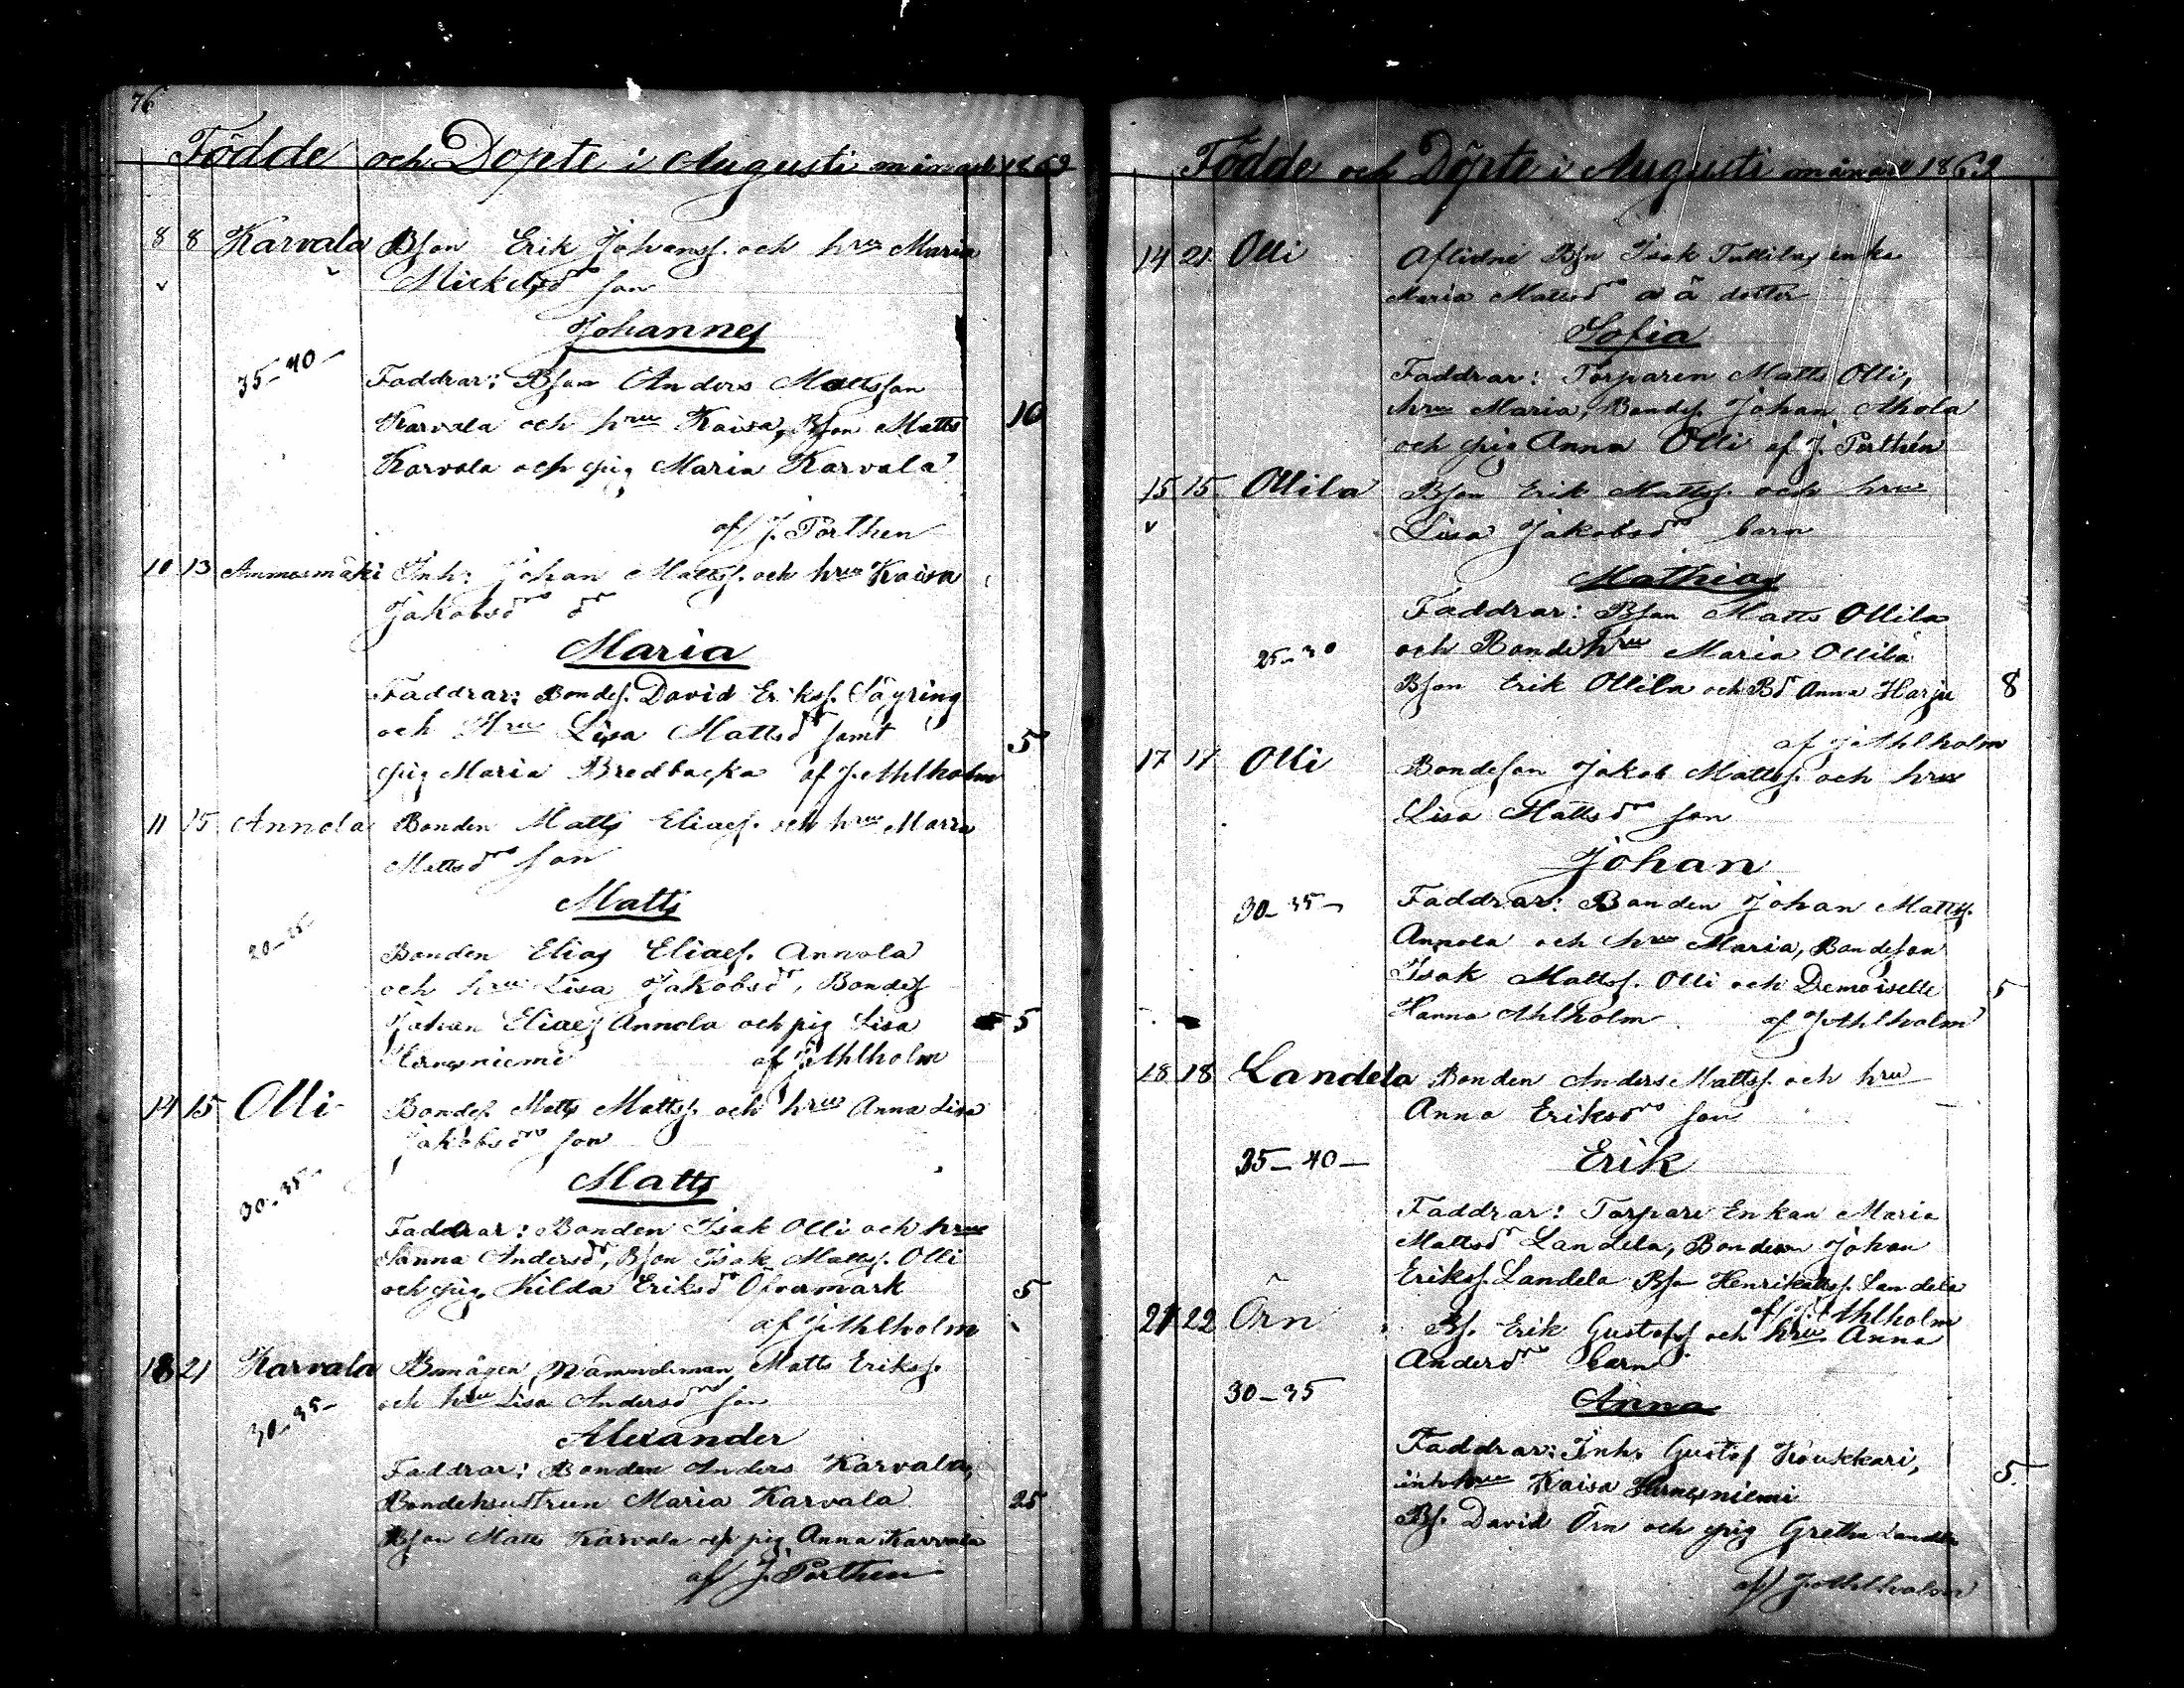 76
Födde och Döpte i Augusti månad 1869
8 8 Karvala Bson Erik Johanss. och hru Maria
Mickelsdrs son
Johannes
35-40-
Faddrar: Bson Anders Mattsson
Karvala och hru Kaisa, Bson Matts 10
Karvala och pig Maria Karvala
af J. Porthen
10 13 Ammesmäki Inh: Johan Mattss. och hru Kaisa
Jakobsdrs dr
Maria
Faddrar: Bondes. David Erikss.
och Hru Lisa Mattsdr samt 5
pig Maria Bredbacka af J. Ahlholm
11 15 Annola Bonden Matts Eliaes. och hru Maria
Mattsdrs son
Matts
20-25-
Bonden Elias Eliaes. Annola
och hru Lisa Jakobsdr, Bondes
Johan Eliaes Annola och pig Lisa 5
Hernesniemi af J. Ahlholm
14 15 Olli Bondes Matts Mattss. och hru Anna Lisa
Jakobsdrs son
Matts
30-35-
Faddrar: Bonden Isak Olli och hru
Sanna Andersdr, Bson Isak Mattss. Olli
och pig. Hilda Eriksdr Öfvermark 5
af J. Ahlholm
18 21 Karvala Bmågen Nämndeman Matts Erikss.
och hru Lisa Andersdrs son
30-35-
Alexander
Faddrar: Bonden Anders Karvala,
Bondehustrun Maria Karvala 25
Bson Matts Karvala och pig Anna Karvala
af J. Porthen
Födde och Döpte i Augusti månad 1869
14 21 Olli Aflidne Bsn Isak enka
Maria Mattsdrs o ä dotter
Sofia
Faddrar: Torparen Matts Olli,
hru Maria, Bondes. Johan Ahola
och pig Anna Olli af J. Porthén
15 15 Ollila Bson Erik Mattss. och hru
Lisa Jakobsdrs barn
Mathias
Faddrar: Bson Matts Ollila
25-30 och Bondehru Maria Ollila
Bson Erik Ollila och Bdr Anna Harju 8
af J. Ahlholm
17 17 Olli Bondeson Jakob Mattss. och hru
Lisa Mattsdrs son
Johan
30-35- Faddrar: Bonden Johan Mattss.
Annola och hru Maria, Bondeson
Isak Mattss. Olli och Demoiselle 5
Hanna Ahlholm af J. Ahlholm
18 18 Landela Bonden Anders Mattss. och hru
Anna Eriksdrs son
35-40- Erik
Faddrar: Torpare Enkan Maria
Mattsdr Landela, Bonden Johan
Erikss. Landela Bsn Henrik Mattss. Landela
af J. Ahlholm
21 22 Örn Bs. Erik Gustafss och hru Anna
Andersdrs barn
30-35
Anna
Faddrar: Inh. Gustaf Koukkari, 5.
inh hru Kaisa Hernesniemi
Bs. David Örn och pig Gretha Landela
af J. Ahlholm